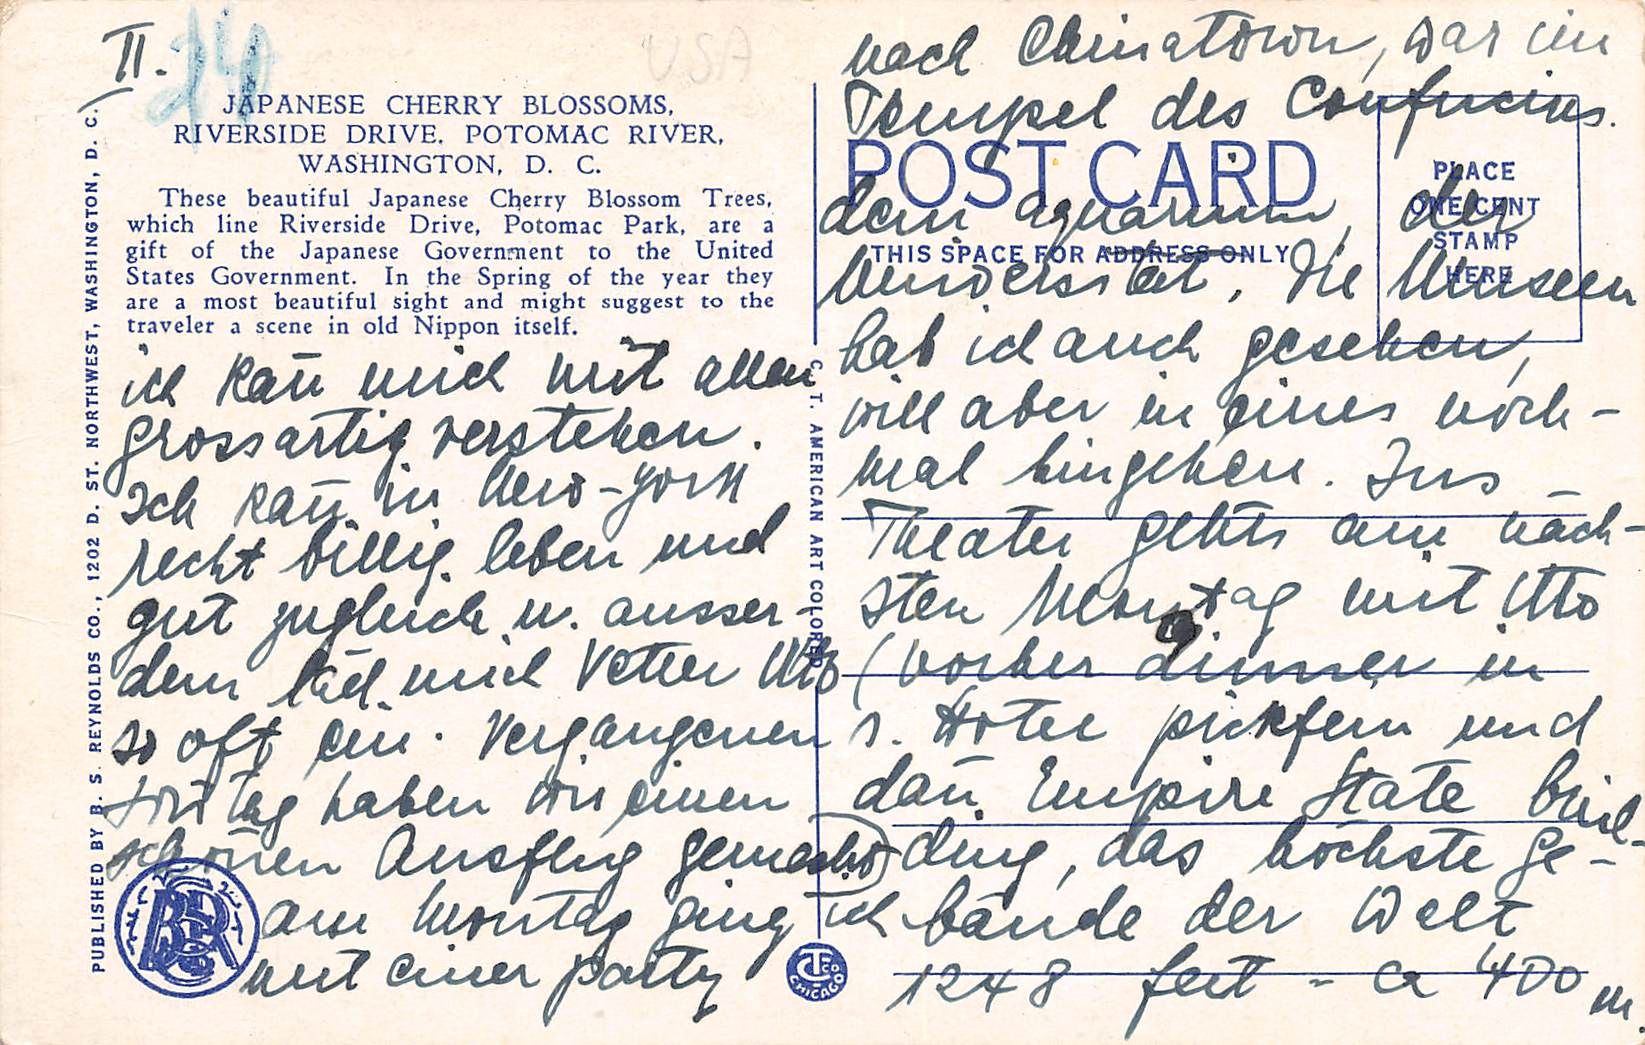 II.
24
USA
JAPANESE CHERRY BLOSSOMS,
RIVERSIDE DRIVE, POTOMAC RIVER,
WASHINGTON, D. C.
These beautiful Japanese Cherry Blossom Trees,
which line Riverside Drive, Potomac Park, are a
gift of the Japanese Government to the United
States Government. In the Spring of the year they
are a most beautiful sight and might suggest to the
traveler a scene in old Nippon itself.
ich kan̄ mich mit allen
grossartig verstehen.
Ich kan̄ in New-York
recht billig leben und
gut zugleich u. ausser-
dem läd mich Vetter Otto
so oft ein. Vergangenen
Son̄tag haben wir einen
schönen Ausflug gemacht
am Montag ging ich
mit einer party
PUBLISHED BY B. S. REYNOLDS CO., 1202 D. ST. NORTHWEST, WASHINGTON, D. C.
BSR
C. T. AMERICAN ART COLORED
CTCO
CHICAGO
nach Chinatown, war im
Tempel des Confucius.
POST CARD
PLACE
ONE CENT
STAMP
HERE
dem aquarium, der
THIS SPACE FOR ADDRESS ONLY
Universität, Die Museen
hab ich auch gesehen,
will aber in eines noch-
mal hingehen. Ins
Theater gehts am näch-
sten Montag mit Otto
(vorher dinner in
s. Hotel pickfein und
dan̄ Empire State buil-
ding, das höchste Ge-
bäude der Welt
1248 feet - ca 400 m.